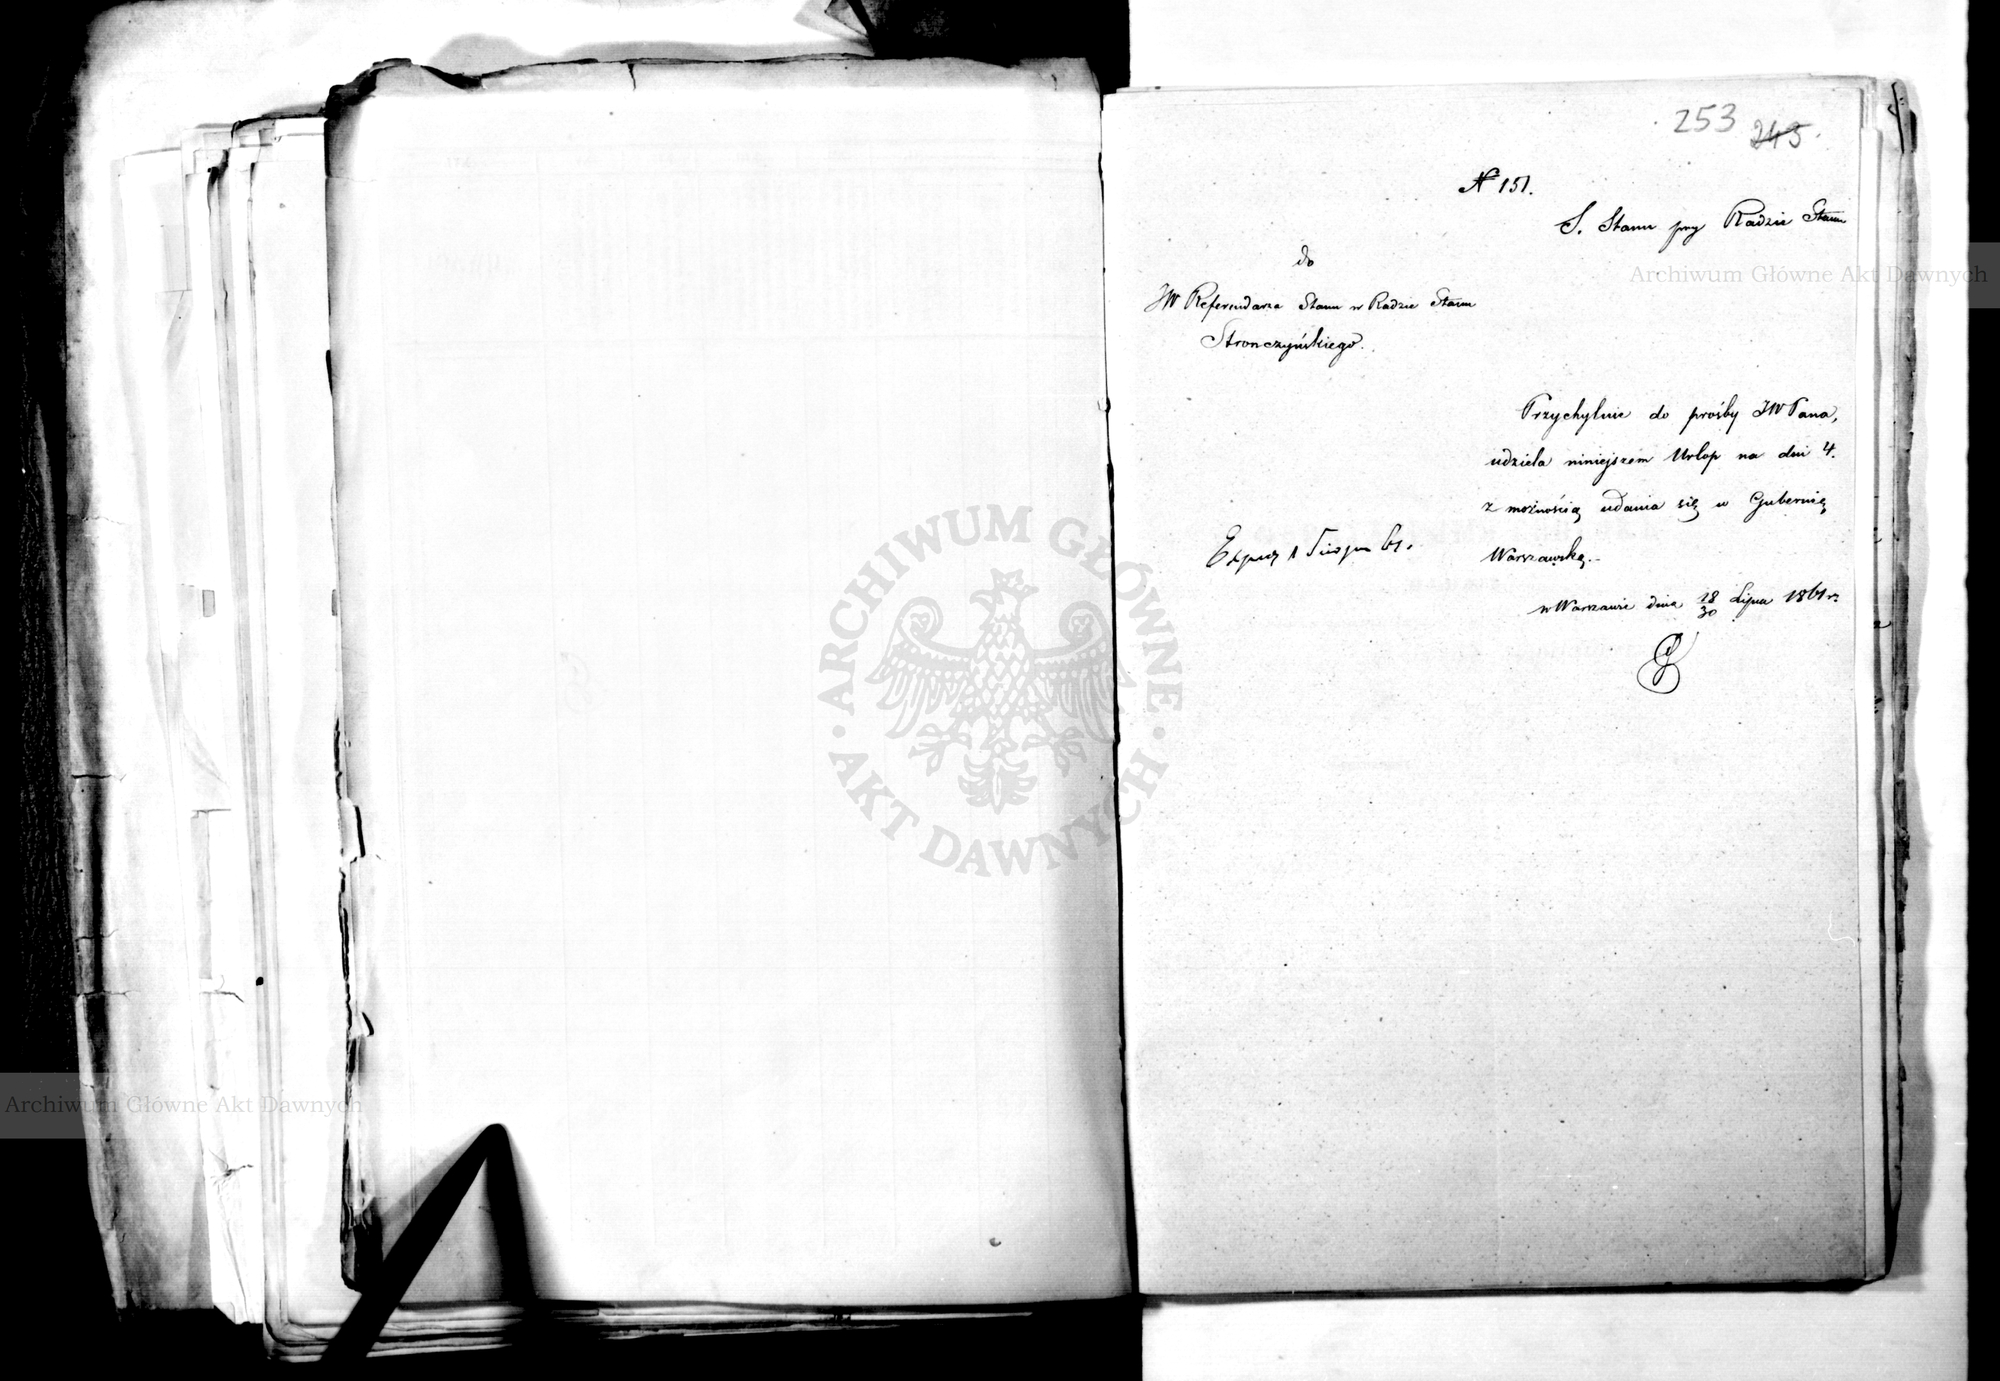 253 245.
№ 151.
S. Stanu przy Radzie Stanu
do
JW Referendarza Stanu w Radzie Stanu
Stronczyńskiego.
Przychylnie do prośby JW Pana,
udziela niniejszem Urlop na dni 4.
z możnością udania się w Gubernię
Warszawską.-
w Warszawie dnia 18/30 Lipca 1861 r.
Exped 1 Sierpn 61.
ARCHIWUM GŁÓWNE
AKT DAWNYCH
Archiwum Główne Akt Dawnych
Archiwum Główne Akt Dawnych